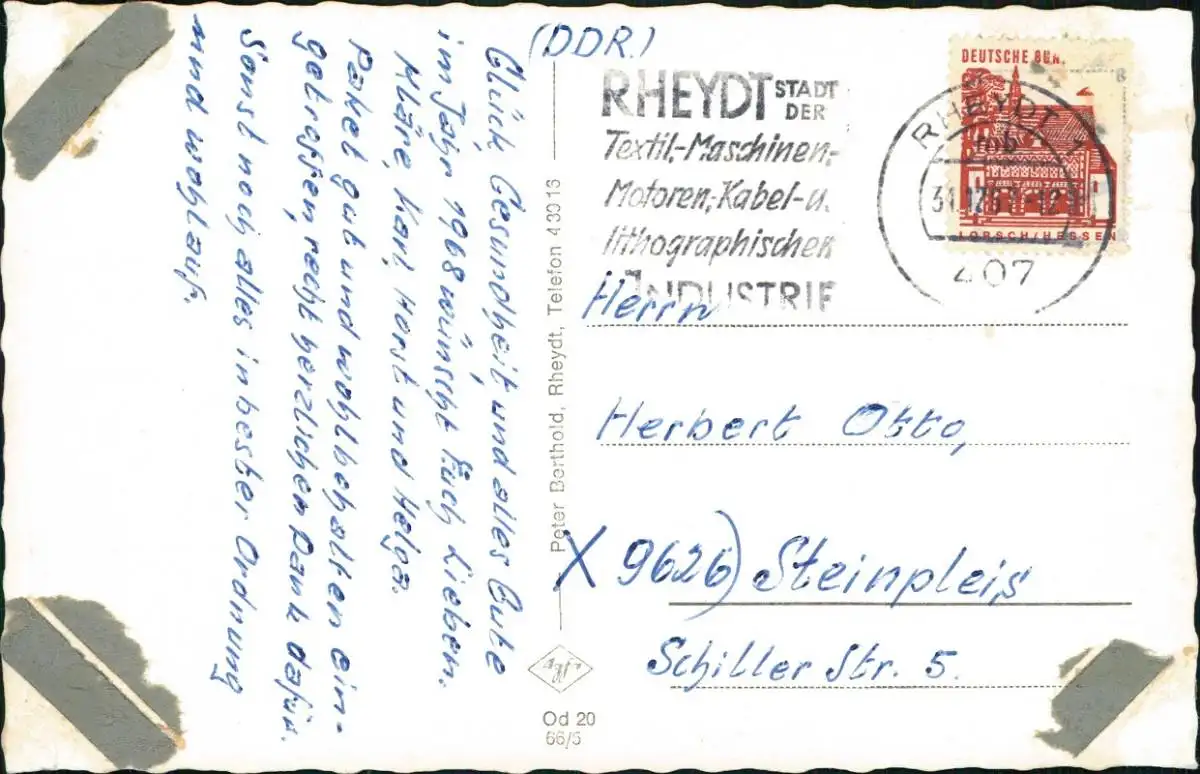 (DDR)
Glück, Gesundheit und alles Gute
im Jahr 1968 wünscht Euch Lieben.
Kläre, Karl, Horst und Helga.
Paket gut und wohlbehalten ein-
getroffen, recht herzlichen Dank dafür.
Sonst noch alles in bester Ordnung
und wohlauf.
Peter Berthold, Rheydt, Telefon 43016
RHEYDT STADT
DER
Textil-Maschinen-
Motoren-,Kabel-u.
lithographischen
INDUSTRIE
DEUTSCHE BUN.
LORSCH/HESSEN
RHEYDT 1
mb
407
Herrn
Herbert Otto,
X 9626) Steinpleis
Schiller Str. 5.
Agfa
Od 20
66/5